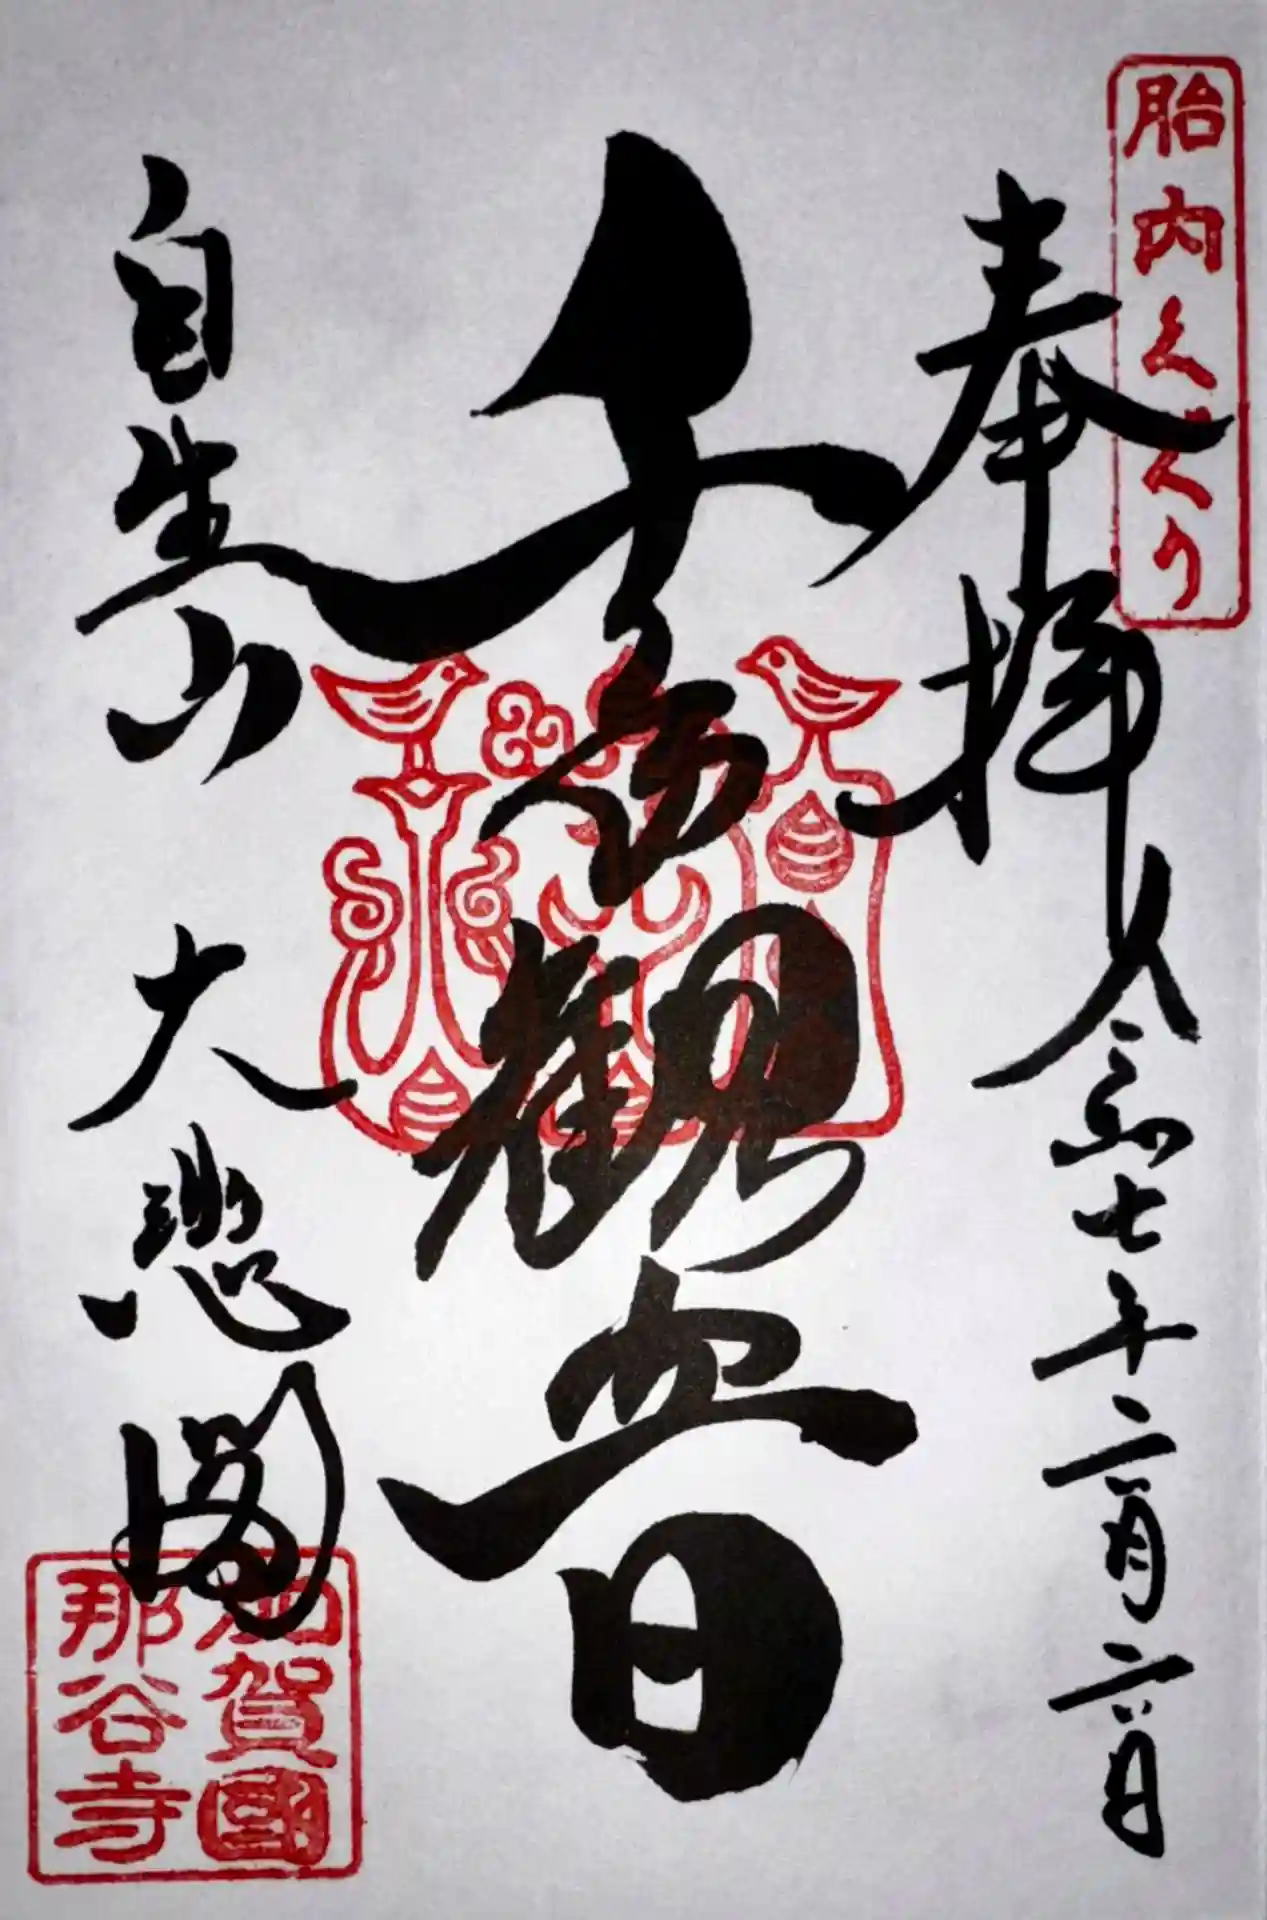 胎内くぐり
奉拝 令和七年二月六日
千手観世音
自生山 大悲閣
加賀國
那谷寺